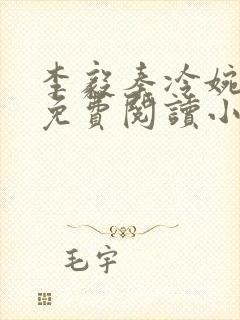 李毅秦冷婉
免費閱讀小
毛宇